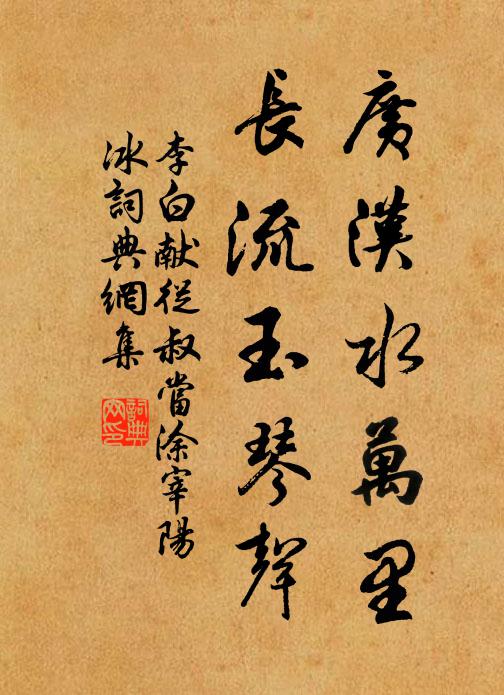 廣漢水萬里
長流玉琴聲
李白献從叔當涂宰陽
冰詞典網集
詞典
网印